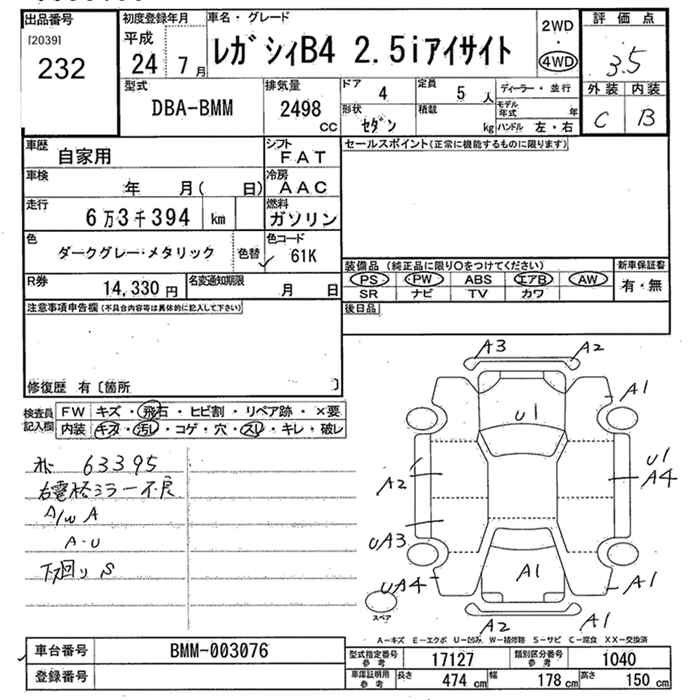 出品番号 初度登録年月 車名・グレード 2WD 評価点
[2039] 平成 ・
232 24 7月 レガシィB4 2.5iアイサイト 4WD 3.5
型式 排気量 ドア 4 定員 5人 ディーラー・並行 外装 内装
DBA-BMM 2498 cc 形状 セダン 積載 kg モデル年式 年 C B
ハンドル 左・右
車歴 自家用 シフト FAT セールスポイント(正常に機能するものに限ります)
車検 年 月( 日) 冷房 AAC
走行 6万3千394 km 燃料 ガソリン
色 ダークグレー・メタリック 色替 色コード 61K
装備品(純正品に限り○をつけてください) 新車保証書
R券 14,330円 名変通知期限 月 日 PS PW ABS エアB AW 有・無
SR ナビ TV カワ
注意事項申告欄(不具合内容等は具体的に記入して下さい) 後日品
修復歴 有〔箇所 〕
検査員記入欄 FW キズ・飛石・ヒビ割・リペア跡・×要
内装 キズ・汚レ・コゲ・穴・スレ・キレ・破レ
63395
右電格ミラー不良
A/W A
A・U
下廻り S
A3 A2
A1
U1
A2
U1
A4
UA3
UA4 A1 A1
スペア A2 A1
A-キズ E-エクボ U-凹み W-補修跡 S-サビ C-腐食 XX-交換済
車台番号 BMM-003076 型式指定番号 参考 17127 類別区分番号 参考 1040
登録番号 車庫証明用 参考 長さ 474 cm 幅 178 cm 高さ 150 cm